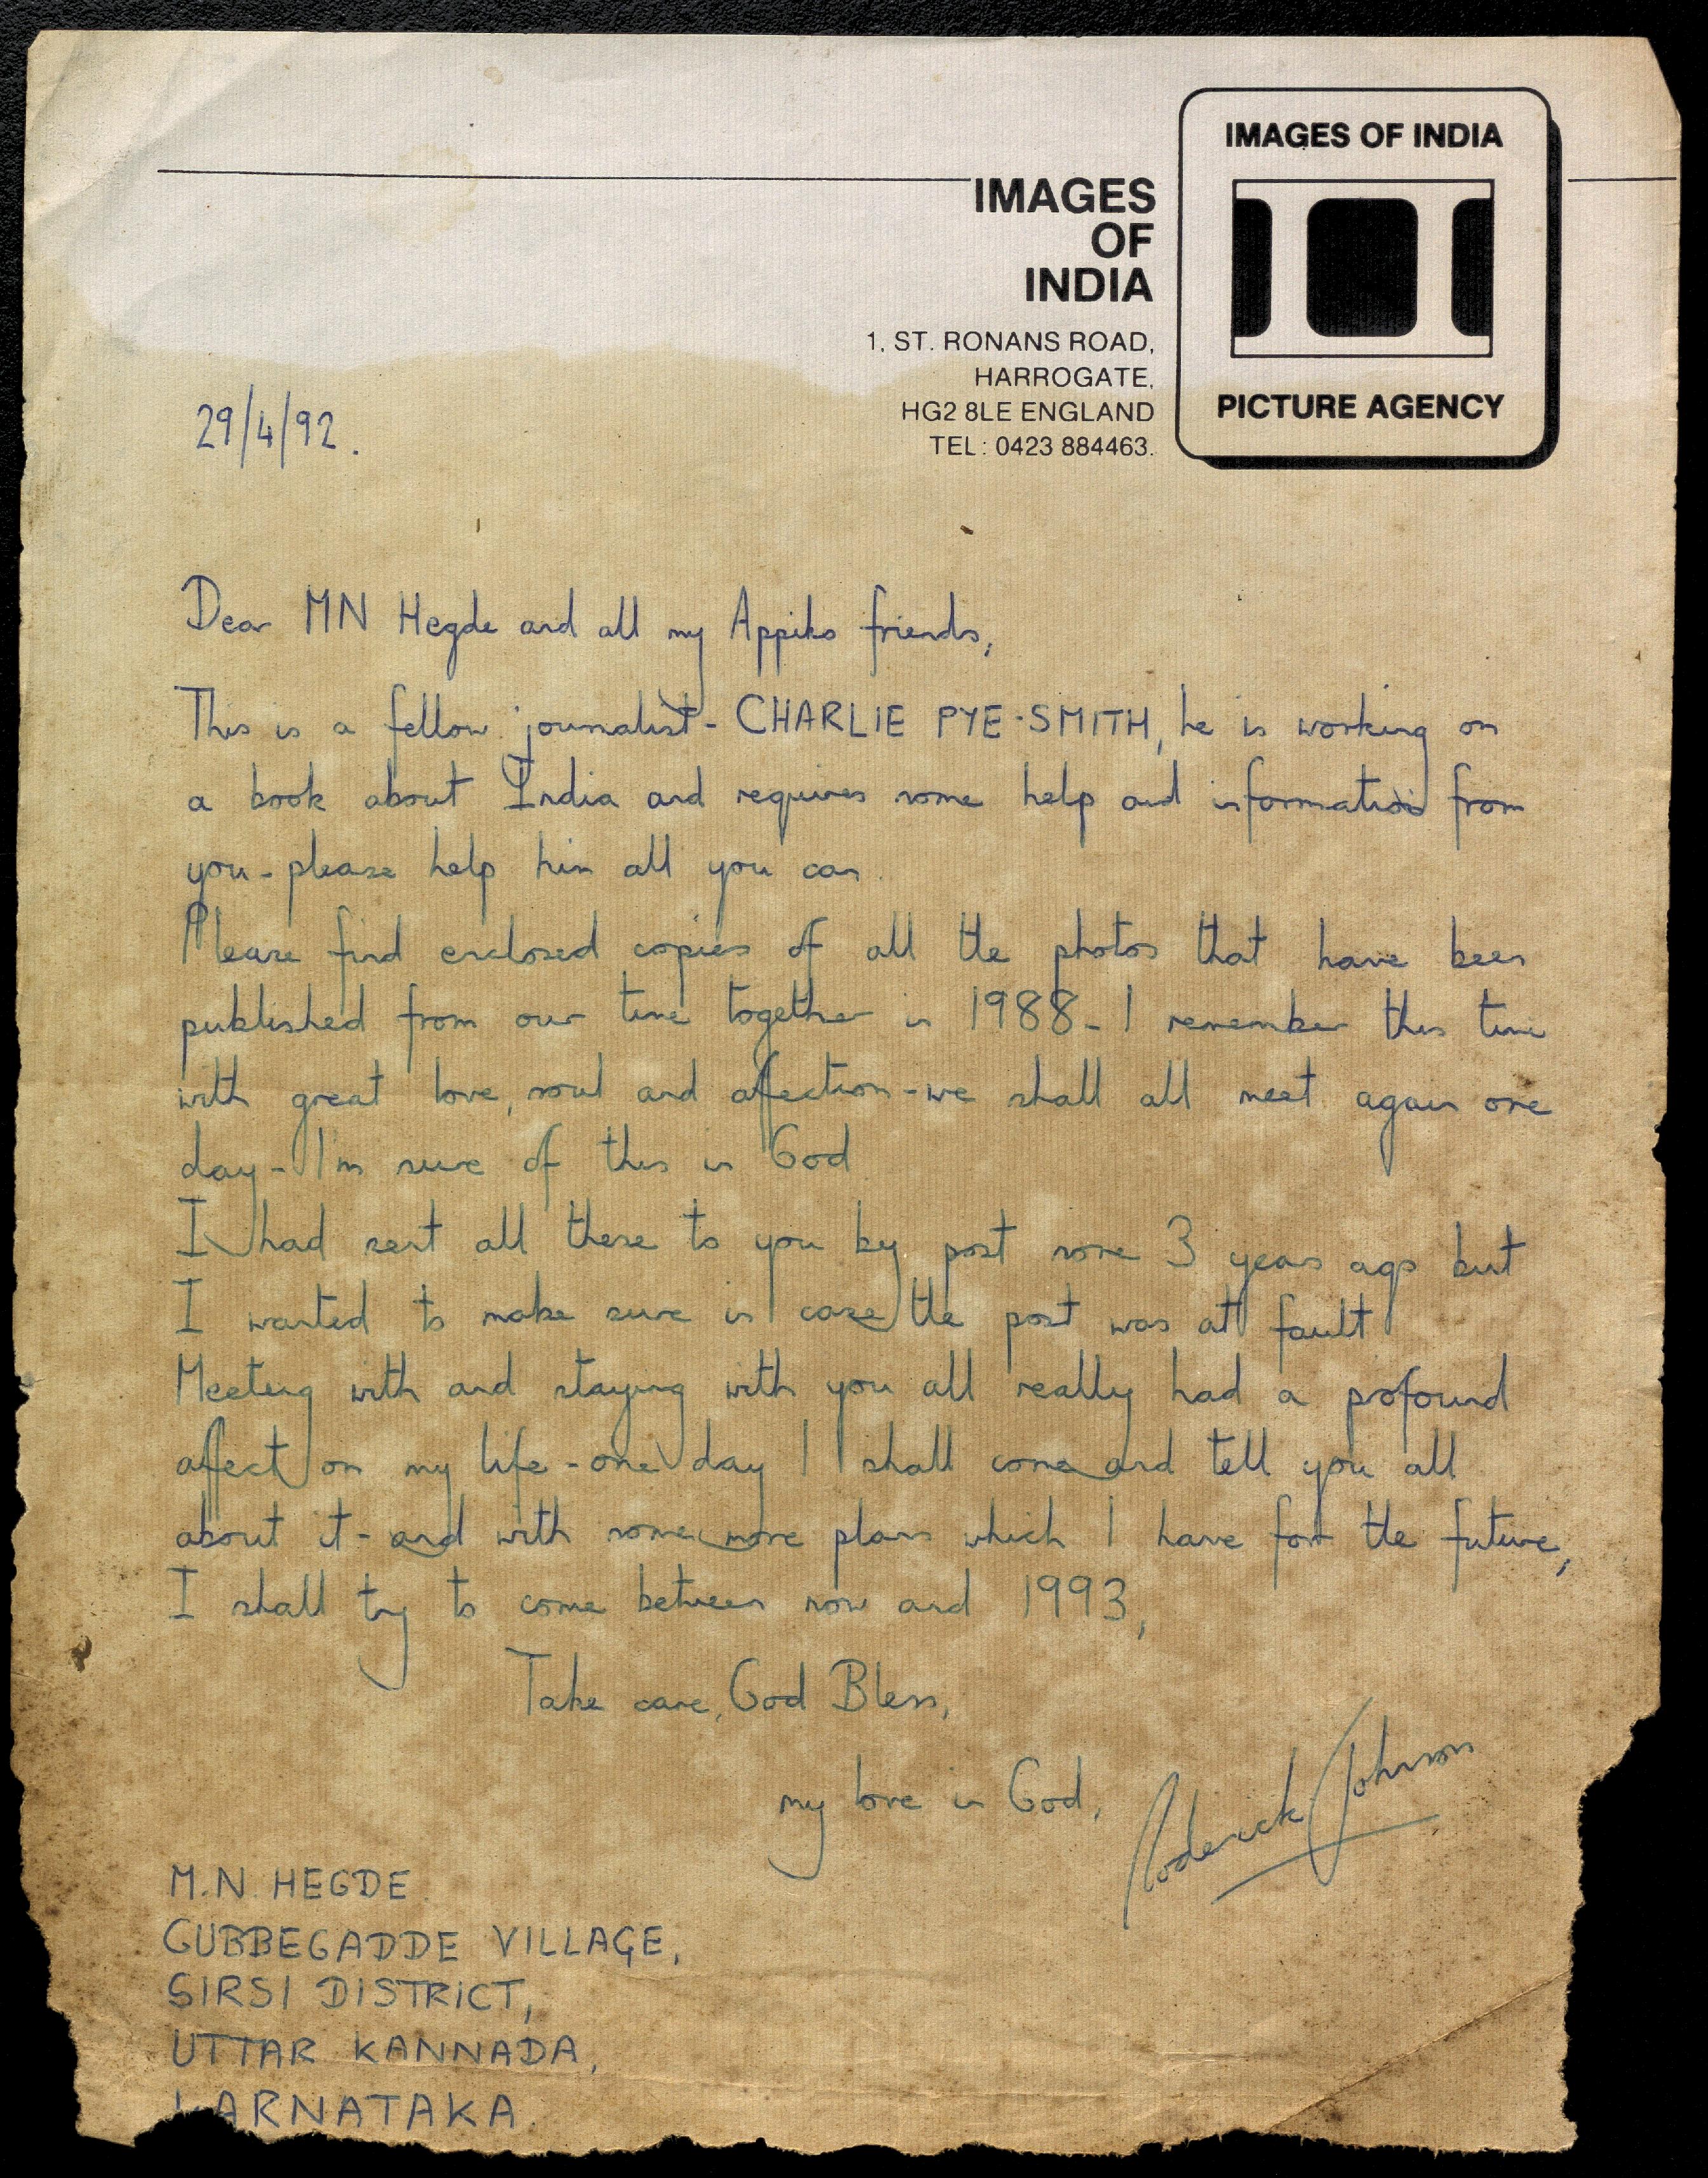 IMAGES OF INDIA
PICTURE AGENCY
IMAGES
OF
INDIA
1, ST. RONANS ROAD,
HARROGATE,
HG2 8LE ENGLAND
TEL: 0423 884463.
29/4/92.
Dear MN Hegde and all my Appiko friends,
This is a fellow journalist - CHARLIE PYE-SMITH, he is working on
a book about India and requires some help and information from
you - please help him all you can.
Please find enclosed copies of all the photos that have been
published from our time together in 1988 - I remember this time
with great love, soul and affection - we shall all meet again one
day - I'm sure of this in God
I had sent all these to you by post some 3 years ago but
I wanted to make sure in case the post was at fault
Meeting with and staying with you all really had a profound
affect on my life - one day I shall come and tell you all
about it - and with some more plans which I have for the future,
I shall try to come between now and 1993,
Take care, God Bless,
my love in God,
Roderick Johnson
M.N. HEGDE
GUBBEGADDE VILLAGE,
SIRSI DISTRICT,
UTTAR KANNADA,
KARNATAKA.